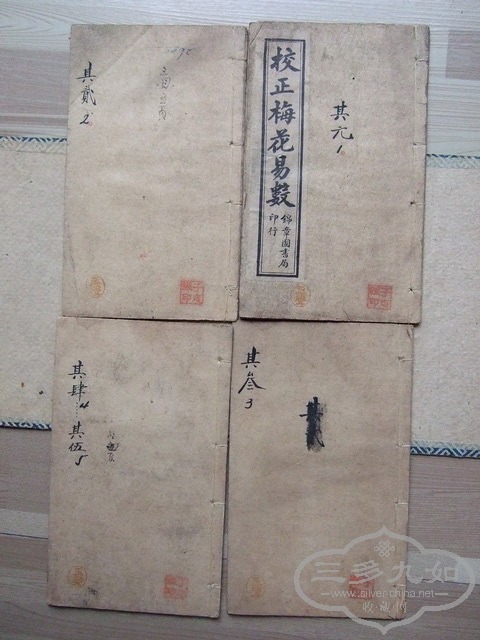 校正梅花易數
錦章圖書局
印行
其元
1
其貳
2
其叁
3
其肆
4
其伍
5
其貳
三多九如
www.silver-china.net
收藏网